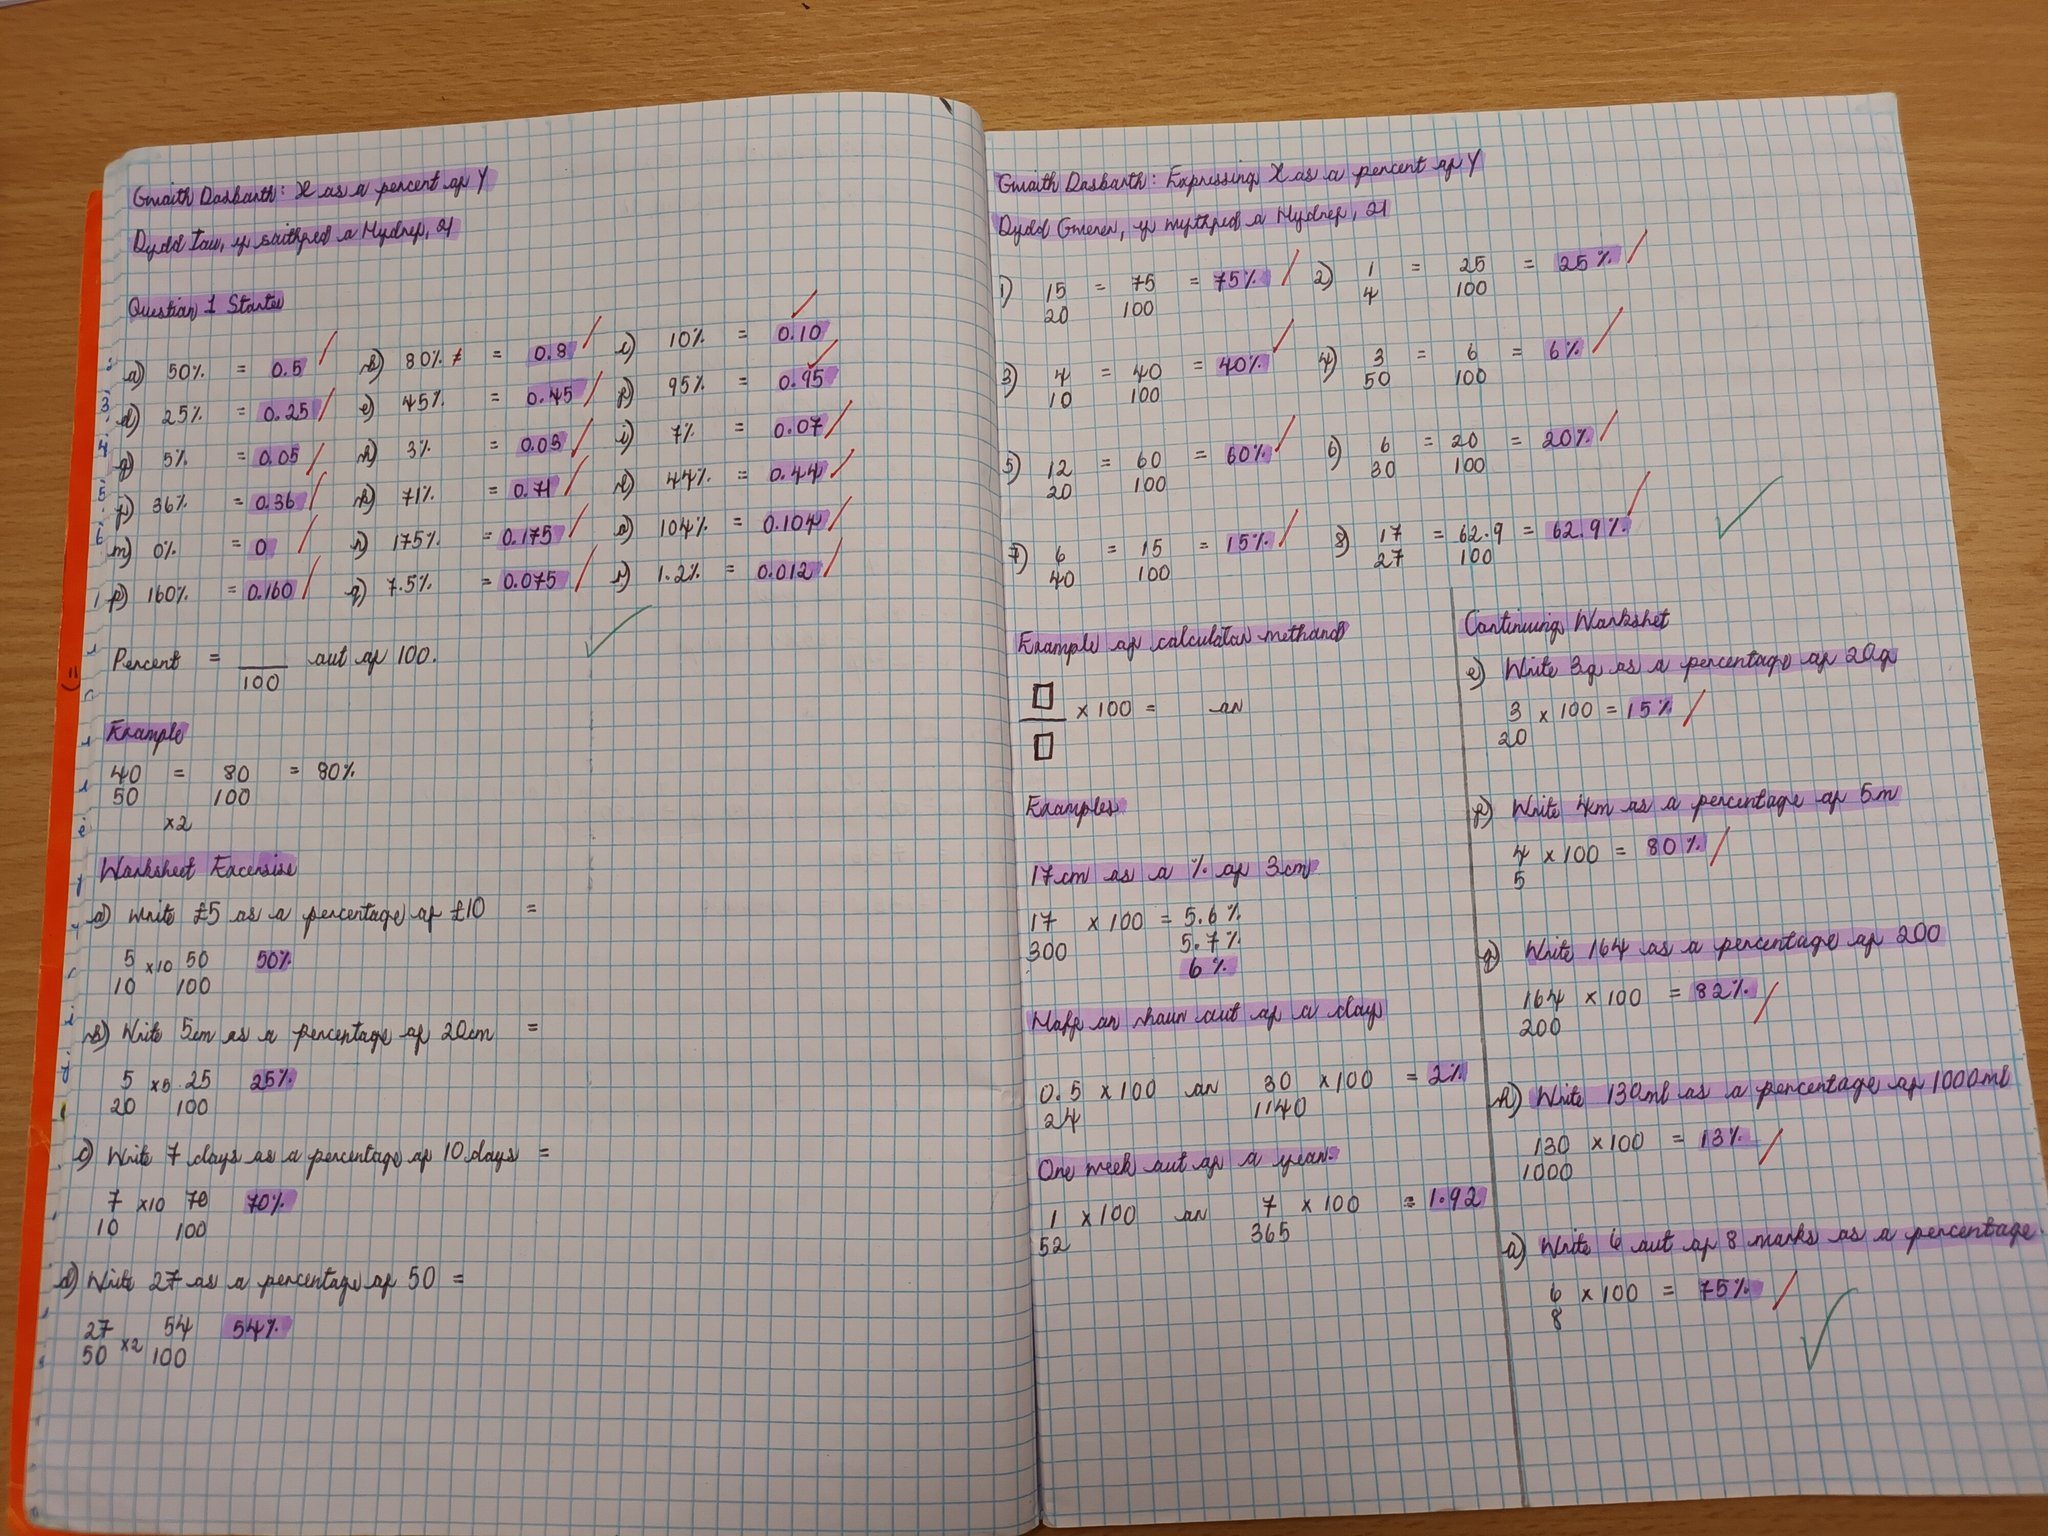 Gwaith Dasbarth: X as a percent of Y
Dydd Iau, y seithfed o Hydref, 21
Question 1 Starter
a) 50% = 0.5 b) 80% = 0.8 c) 10% = 0.10
d) 25% = 0.25 e) 45% = 0.45 f) 95% = 0.95
g) 5% = 0.05 h) 3% = 0.03 i) 7% = 0.07
j) 36% = 0.36 k) 71% = 0.71 l) 44% = 0.44
m) 0% = 0 n) 175% = 0.175 o) 104% = 0.104
p) 160% = 0.160 q) 7.5% = 0.075 r) 1.2% = 0.012
Percent = __ out of 100.
100
Example
40 = 80 = 80%
50 100
x2
Worksheet Excersise
a) Write £5 as a percentage of £10 =
5 x10 50 50%
10 100
b) Write 5cm as a percentage of 20cm =
5 x5 25 25%
20 100
c) Write 7 days as a percentage of 10 days =
7 x10 70 70%
10 100
d) Write 27 as a percentage of 50 =
27 x2 54 54%
50 100
Gwaith Dosbarth: Expressing X as a percent of Y
Dydd Gwener, yr wythfed o Hydref, 21
1) 15 = 75 = 75% 2) 1 = 25 = 25%
20 100 4 100
3) 4 = 40 = 40% 4) 3 = 6 = 6%
10 100 50 100
5) 12 = 60 = 60% 6) 6 = 20 = 20%
20 100 30 100
7) 6 = 15 = 15% 8) 17 = 62.9 = 62.9%
40 100 27 100
Example of calculator method
x 100 = or
Examples
17cm as a % of 3cm
17 x 100 = 5.6%
300 5.7%
6%
Half an hour out of a day
0.5 x 100 or 30 x 100 = 2%
24 1140
One week out of a year.
1 x 100 or 7 x 100 = 1.92
52 365
Continuing Workshet
e) Write 3g as a percentage of 20g
3 x 100 = 15%
20
f) Write 4km as a percentage of 5m
4 x 100 = 80%
5
g) Write 164 as a percentage of 200
164 x 100 = 82%
200
h) Write 130ml as a percentage of 1000ml
130 x 100 = 13%
1000
a) Write 6 out of 8 marks as a percentage
6 x 100 = 75%
8